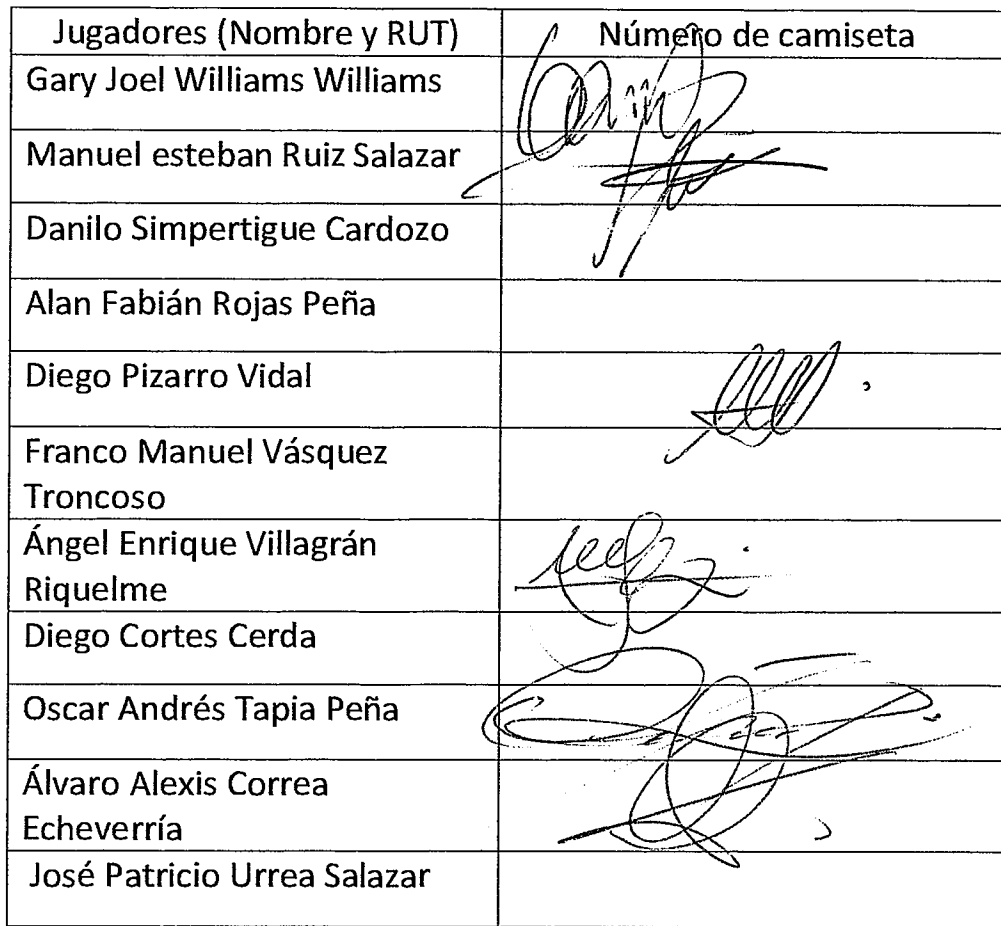 Jugadores (Nombre y RUT) Número de camiseta
Gary Joel Williams Williams
Manuel esteban Ruiz Salazar
Danilo Simpertigue Cardozo
Alan Fabián Rojas Peña
Diego Pizarro Vidal
Franco Manuel Vásquez
Troncoso
Ángel Enrique Villagrán
Riquelme
Diego Cortes Cerda
Oscar Andrés Tapia Peña
Álvaro Alexis Correa
Echeverría
José Patricio Urrea Salazar